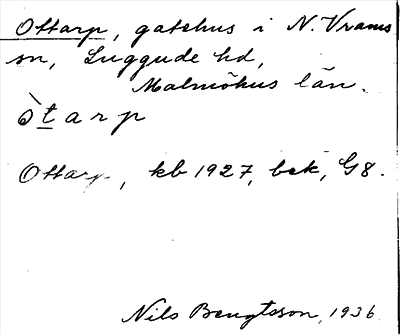 Ottarp, gatehus i N. Vrams
sn, Luggude hd,
Malmöhus län.
òtarp
Ottarp, kb 1927, bek, G8.
Nils Bengtsson, 1936